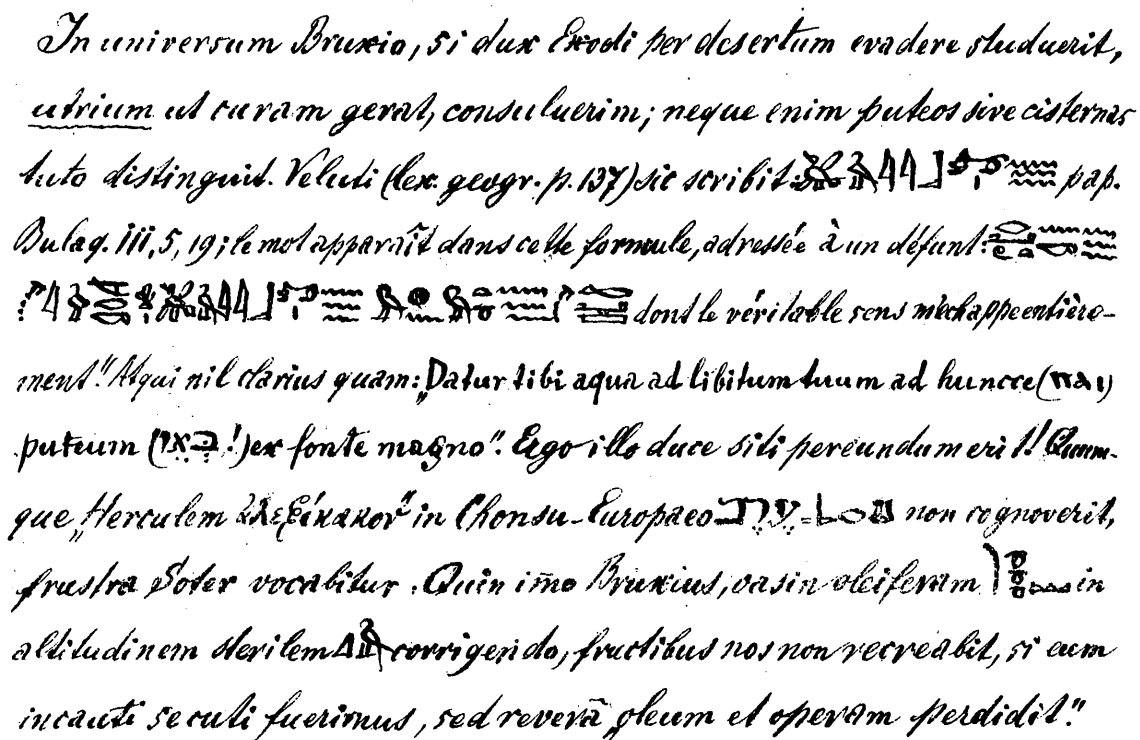 In universum Bruxio, si dux Exodi per desertum evadere studuerit,
utrium ut curam gerat, consuluerim; neque enim puteos sive cisternas
tuto distinguit. Veluti (lex. geogr. p. 137) sic scribit: pap.
Bulaq. III, 5, 19; le mot apparaît dans cette formule, adressée à un défunt:
dont le véritable sens m'échappe entière-
ment". Atqui nil clarius quam: „Datur tibi aqua ad libitum tuum ad huncce (
puteum ( !) ex fonte magno". Ergo illo duce siti pereundum erit! Quum-
que „Herculem ἀλεξίκακον" in Chonsu-Europaeo non cognoverit,
frustra Soter vocabitur. Quin im̄o Bruxius, oasin oleiferam in
altitudinem sterilem corrigendo, fructibus nos non recreabit, si eum
incauti secuti fuerimus, sed reverā „oleum et operam perdidit."